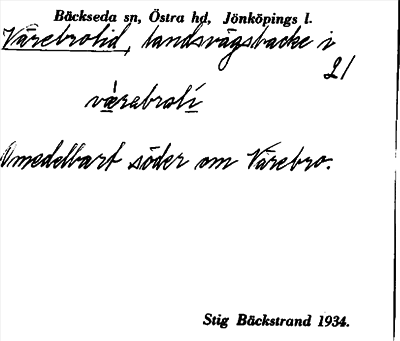 Bäckseda sn, Östra hd, Jönköpings l.
Värebrolid, landsvägsbacke i
21
värebrolí
Omedelbart söder om Värebro.
Stig Bäckstrand 1934.